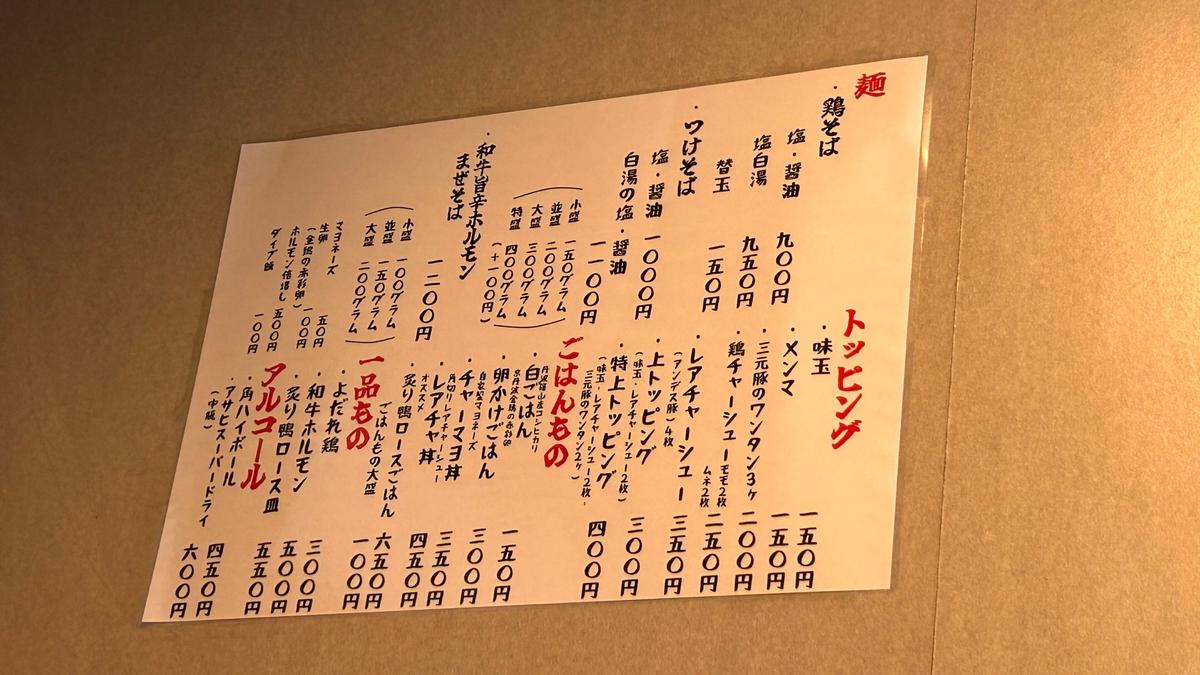 麺
・鶏そば
塩・醤油 九〇〇円
塩白湯 九五〇円
替玉 一五〇円
・つけそば
塩・醤油 一〇〇〇円
白湯の塩・醤油 一一〇〇円
小盛 一五〇グラム
並盛 二〇〇グラム
大盛 三〇〇グラム
特盛 四〇〇グラム
(+一〇〇円)
・和牛旨辛ホルモン
まぜそば 一二〇〇円
小盛 一〇〇グラム
並盛 一五〇グラム
大盛 二〇〇グラム
マヨネーズ 五〇円
生卵 一〇〇円
ホルモン倍増し 五〇〇円
ダイブ飯 一〇〇円
トッピング
・味玉 一五〇円
・メンマ 一五〇円
・三元豚のワンタン3ヶ 二〇〇円
・鶏チャーシュー モモ2枚 ムネ2枚 二五〇円
・レアチャーシュー 三五〇円
(アンデス豚)4枚
・上トッピング 三〇〇円
(味玉・レアチャーシュー2枚)
・特上トッピング 四〇〇円
(味玉・レアチャーシュー2枚・
三元豚のワンタン2ヶ)
ごはんもの
丹波篠山産コシヒカリ
・白ごはん 一五〇円
京丹波金鶏の赤彩卵
・卵かけごはん 三〇〇円
自家製マヨネーズ
・チャーマヨ丼 三五〇円
角切りレアチャーシュー
・レアチャ丼 四五〇円
オススメ
・炙り鴨ロースごはん 六五〇円
ごはんもの大盛 一〇〇円
一品もの
・よだれ鶏 三〇〇円
・和牛ホルモン 五〇〇円
・炙り鴨ロース皿 五五〇円
アルコール
・角ハイボール 四五〇円
・アサヒスーパードライ 六〇〇円
(中瓶)